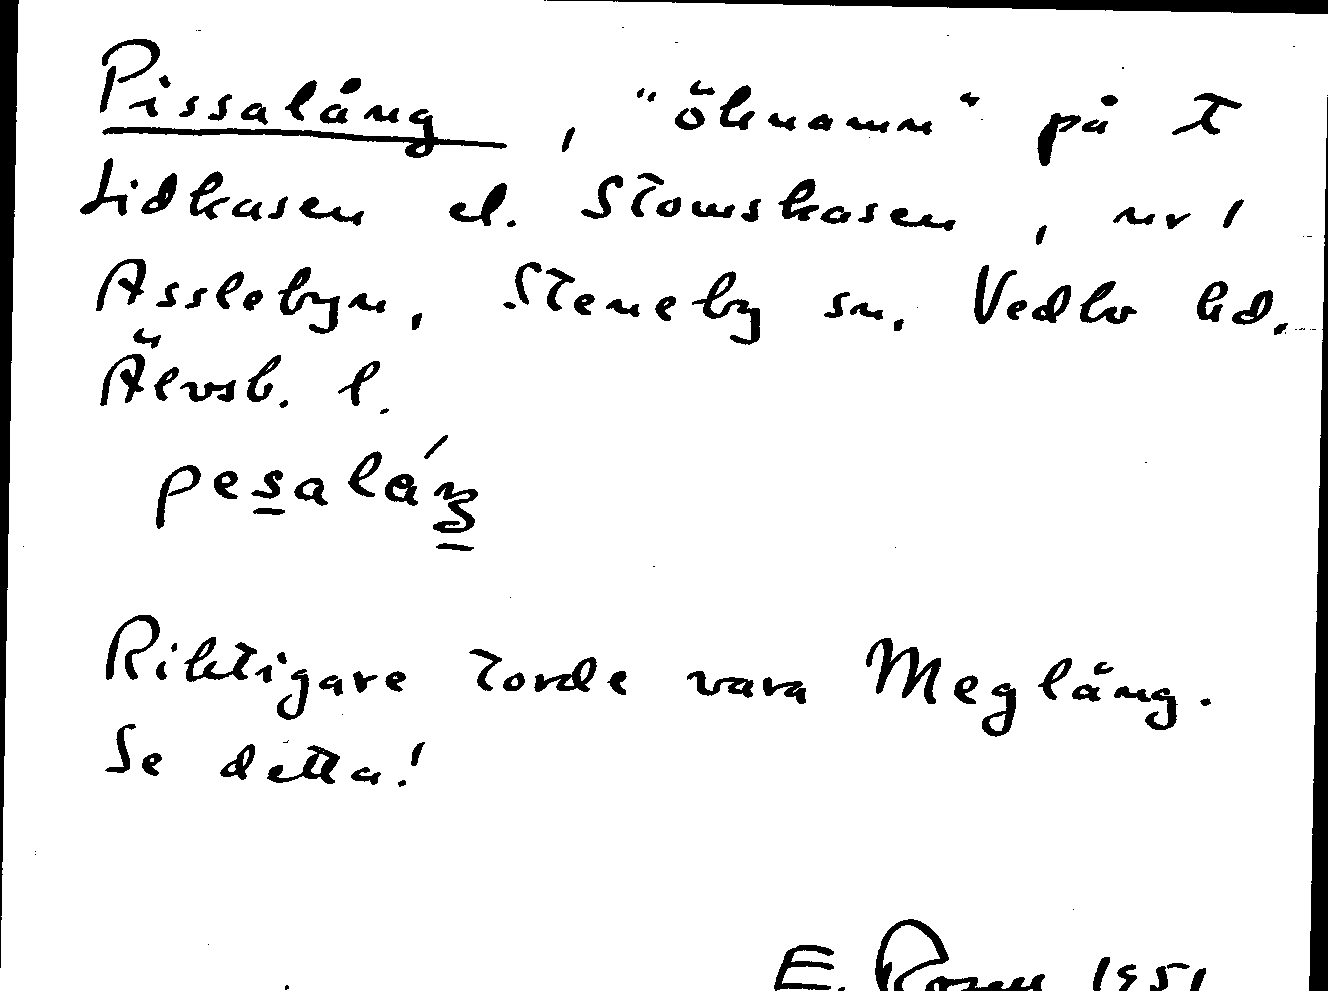 Pissalång, "öknamn" på t
Lidkasen el. Stomskasen, nr 1
Asslebyn, Steneby sn, Vedbo hd.
Älvsb. l.
pesaláŋ
Riktigare torde vara Meglång.
Se detta!
E. Rosen 1951